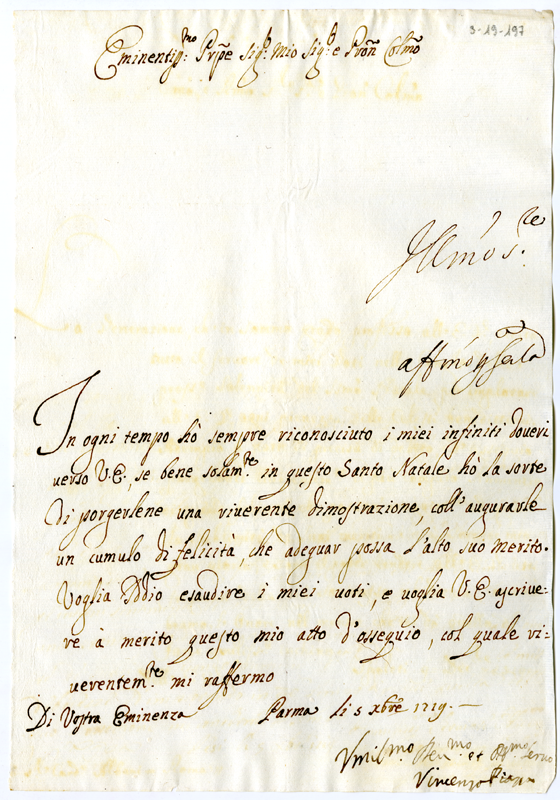 3-19-197
Eminentiss.mo Prpe Sig.r Mio Sig.r e Pron Colmo
Illmo S.re
affmo p
In ogni tempo hò sempre riconosciuto i miei infiniti doveri
verso V.E., se bene solam.te in questo Santo Natale hò la sorte
di porgerlene una riverente dimostrazione, coll'augurarle
un cumulo di felicità, che adeguar possa l'alto suo merito.
Voglia Iddio esaudire i miei voti, e voglia V.E. ascrive-
re à merito questo mio atto d'ossequio, col quale ri-
verentem.te mi raffermo
Di Vostra Eminenza Parma li 5 xbre 1719.
Vmil.mo Dev.mo et Obl.mo Servo
Vincenzo